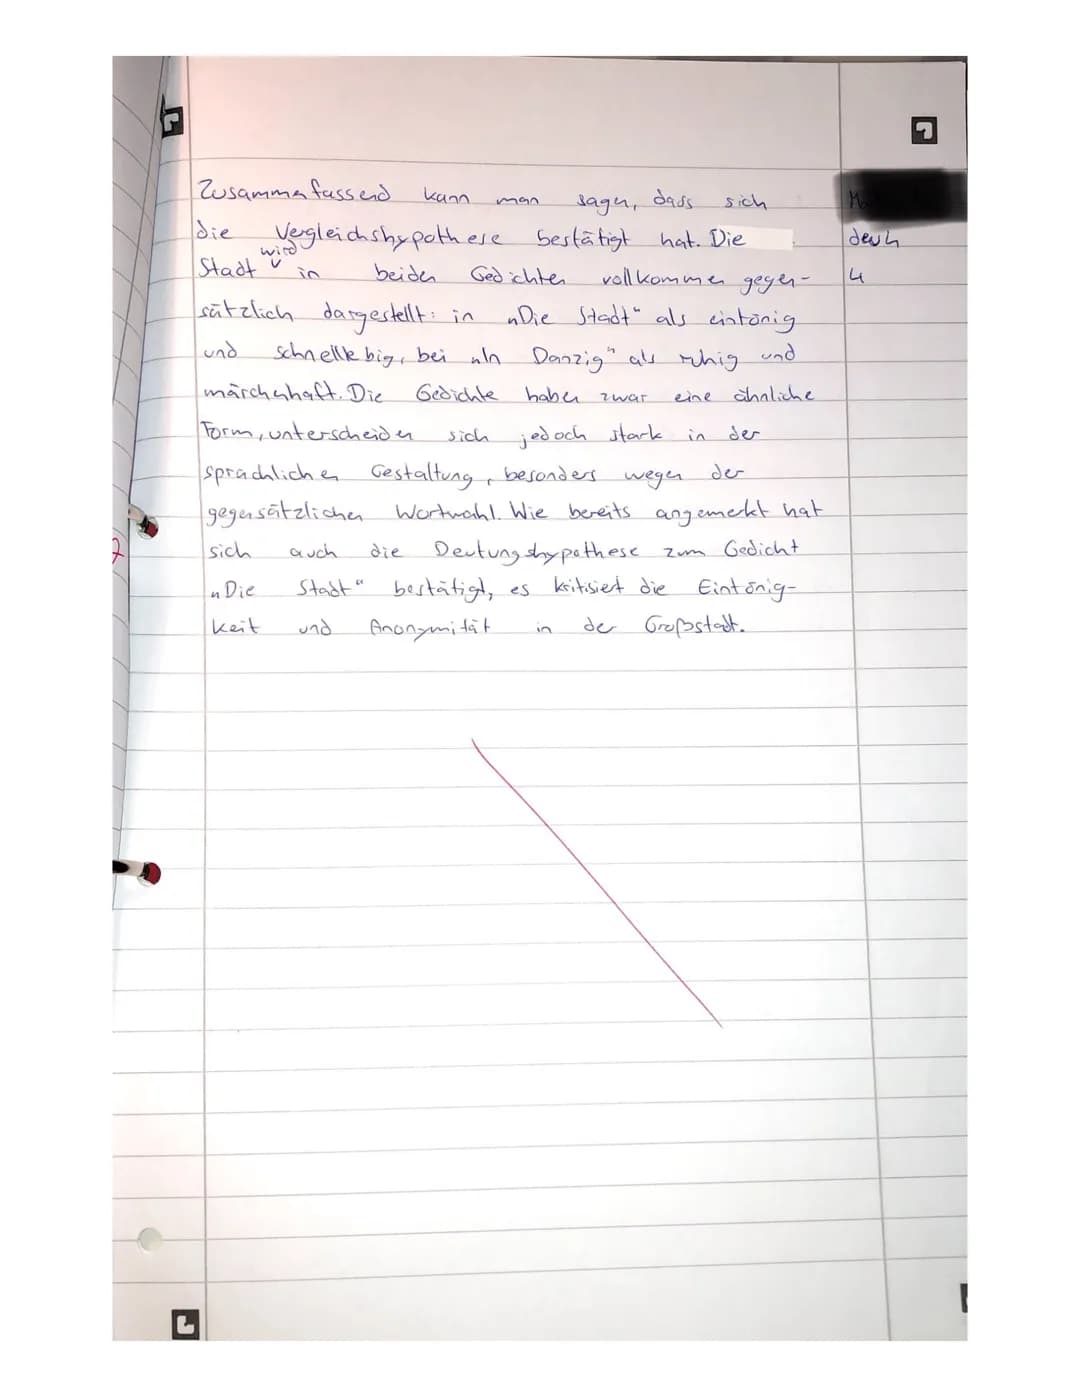 Zusammenfassend kann man sagen, dass sich
die Vergleichshypothese bestätigt hat. Die
wird
Stadt in beiden Gedichten vollkommen gegen-
sätzlich dargestellt: in „Die Stadt“ als eintönig
und schnellebig, bei „In Danzig“ als ruhig und
märchenhaft. Die Gedichte haben zwar eine ähnliche
Form, unterscheiden sich jedoch stark in der
sprachlichen Gestaltung, besonders wegen der
gegensätzlichen Wortwahl. Wie bereits angemerkt hat
sich auch die Deutungshypothese zum Gedicht
„Die Stadt“ bestätigt, es kritisiert die Eintönig-
keit und Anonymität in der Großstadt.
4